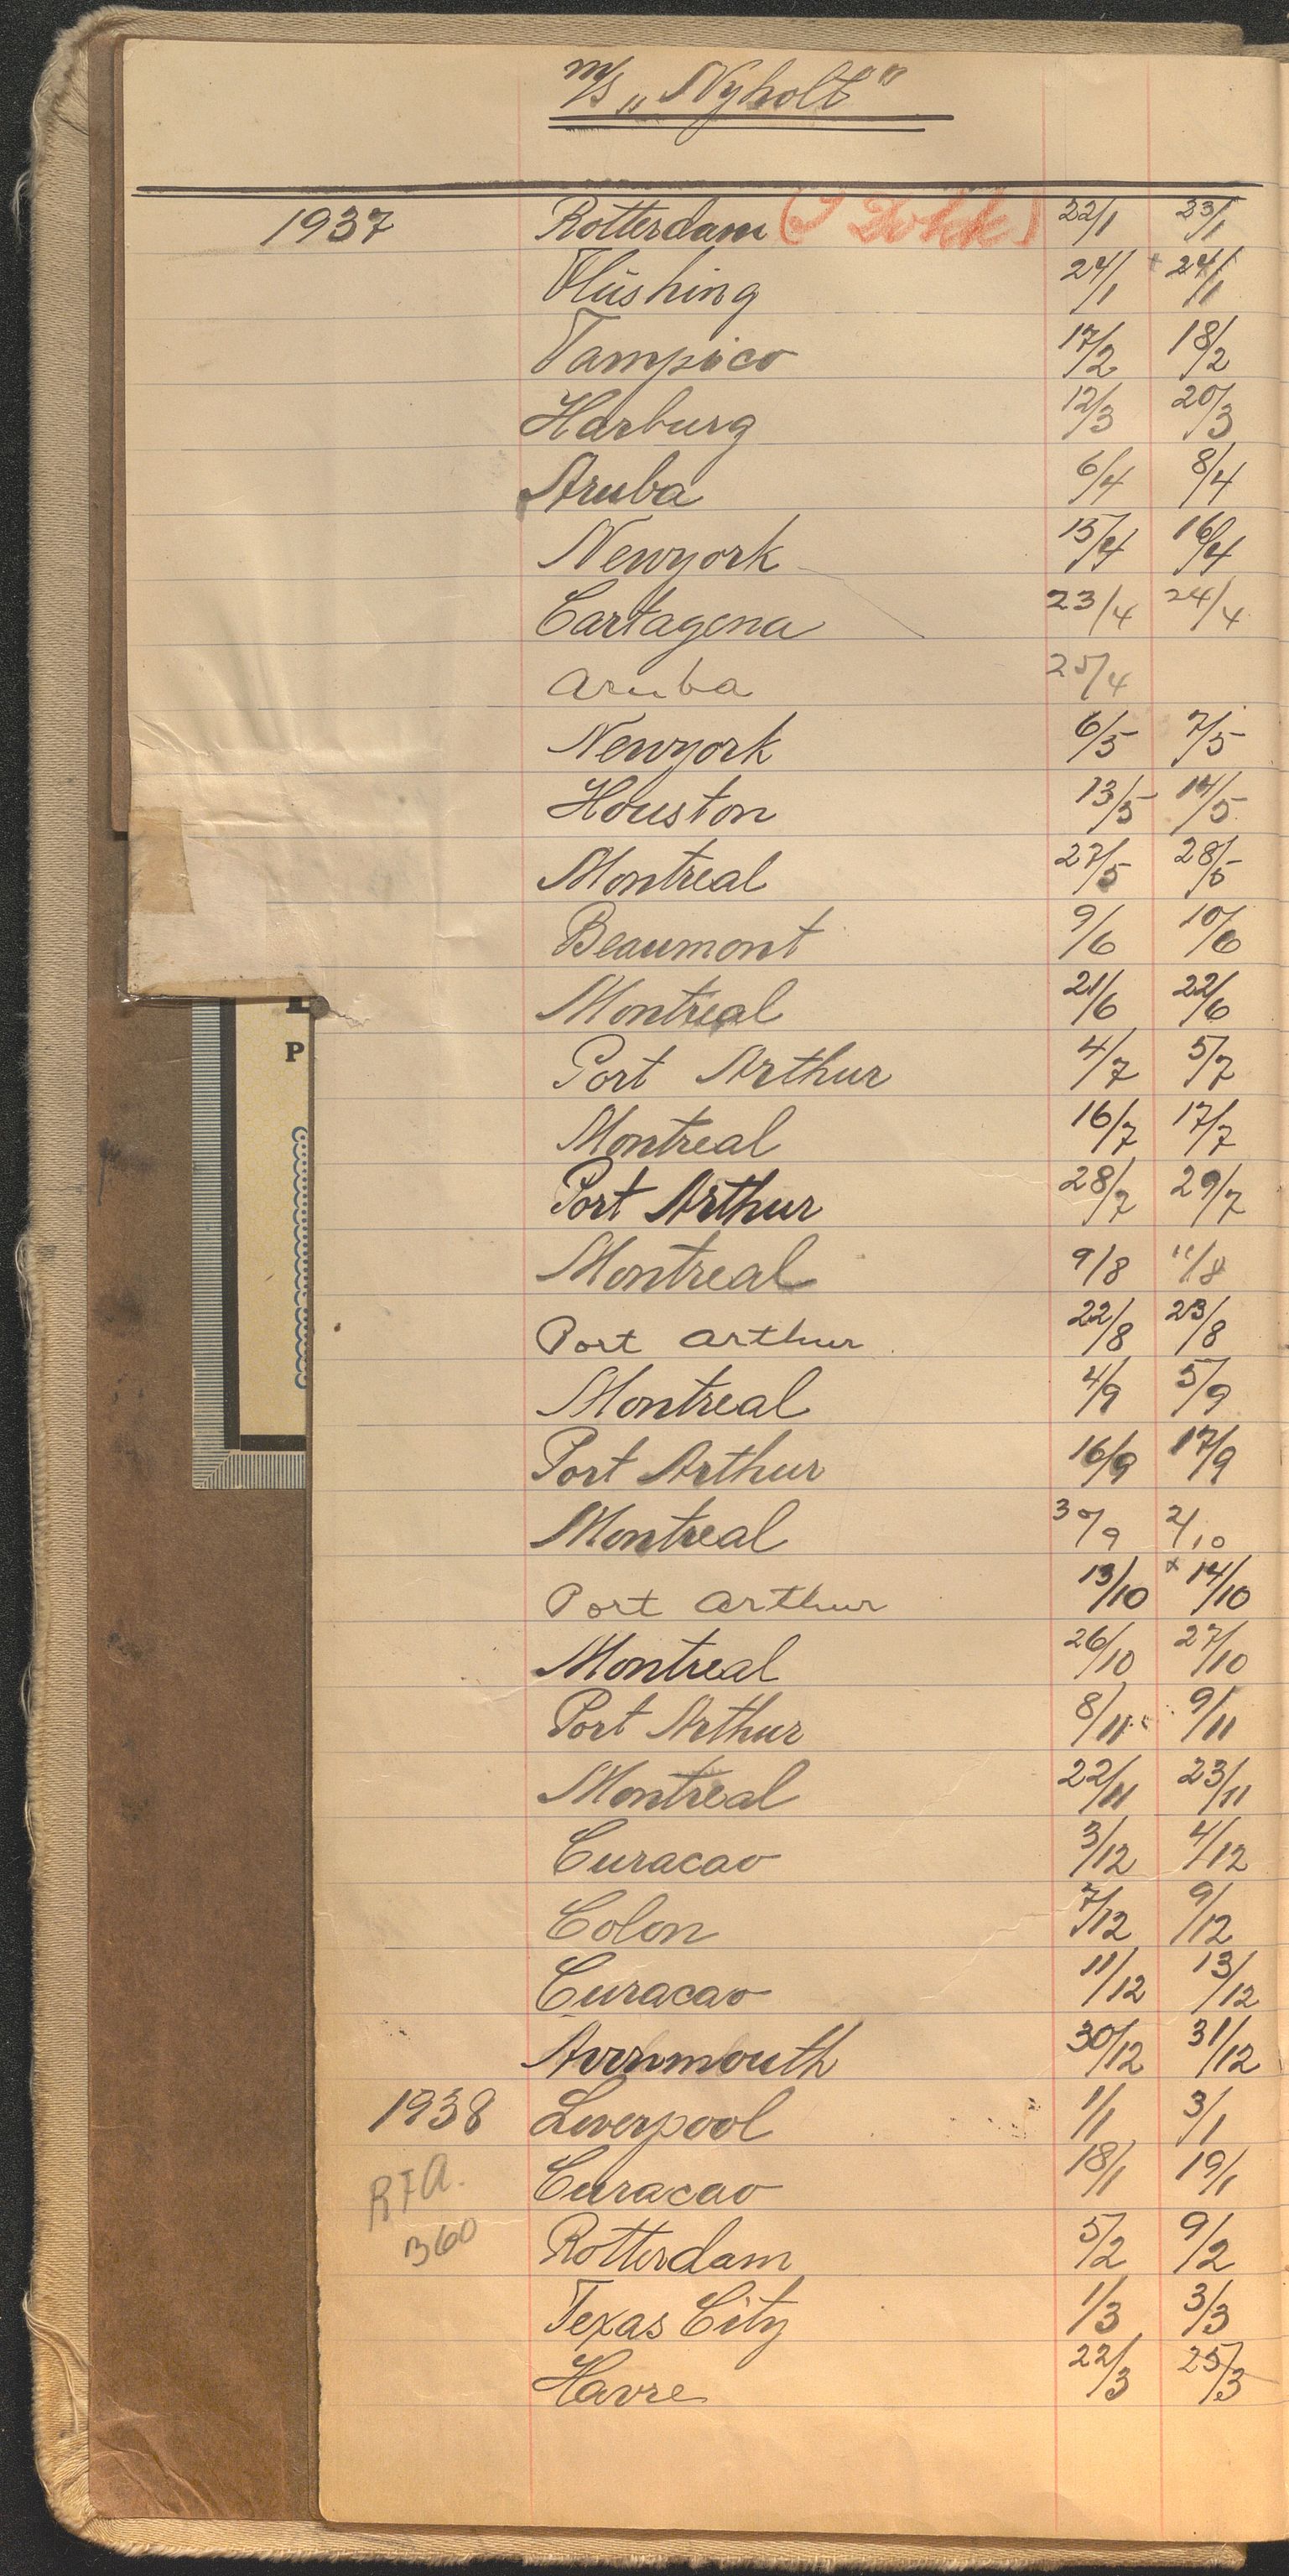 m/s „Nyholt"
1937 Rotterdam (I Dokk) 22/1 23/1
Vlüshing 24/1 24/1
Tampico 17/2 18/2
Harburg 12/3 20/3
Aruba 6/4 8/4
Newyork 15/4 16/4
Cartagena 23/4 24/4
Aruba 25/4
Newyork 6/5 7/5
Houston 13/5 14/5
Montreal 27/5 28/5
Beaumont 9/6 10/6
Montreal 21/6 22/6
Port Arthur 4/7 5/7
P
Montreal 16/7 17/7
Port Arthur 28/7 29/7
Montreal 9/8 11/8
Port Arthur 22/8 23/8
Montreal 4/9 5/9
Port Arthur 16/9 17/9
Montreal 30/9 2/10
Port Arthur 13/10 x 14/10
Montreal 26/10 27/10
Port Arthur 8/11 9/11
Montreal 22/11 23/11
Curacao 3/12 4/12
Colon 7/12 9/12
Curacao 11/12 13/12
Avenmouth 30/12 31/12
1938 Liverpool 1/1 3/1
RFA. Curacao 18/1 19/1
360 Rotterdam 5/2 9/2
Texas City 1/3 3/3
Havre 22/3 25/3